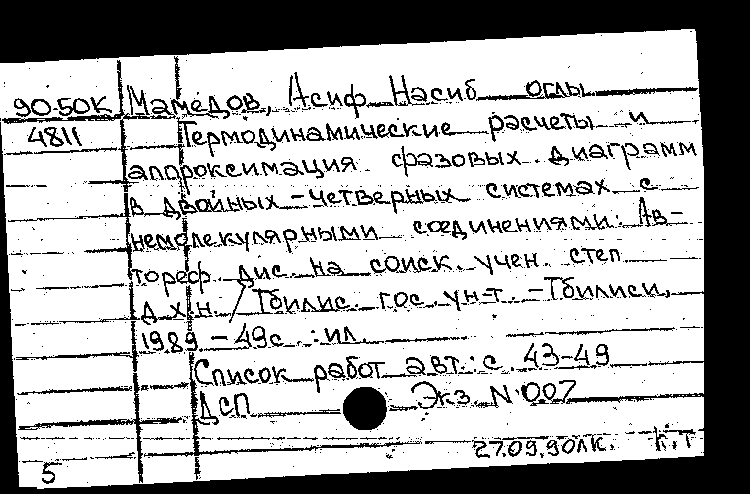 90-50К Мамедов, Асиф Насиб оглы
4811 Термодинамические расчеты и
аппроксимация фазовых диаграмм
в двойных-четверных системах с
немолекулярными соединениями: Ав-
тореф. дис. на соиск. учен. степ.
д.х.н. / Тбилис. гос. ун-т. -Тбилиси,
1989 - 49с. :ил.
Список работ авт.: с. 43-49
ДСП Экз. N 007
27.09.90ЛК. К.Т
5